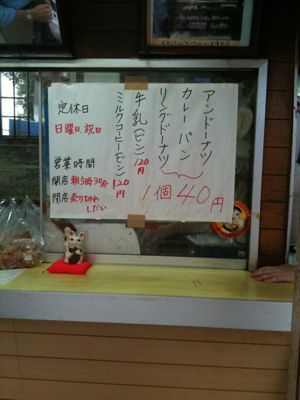 アンドーナツ
カレーパン
リングドーナツ
1個40円
牛乳(ビン)120円
ミルクコーヒー(ビン)120円
定休日
日曜日、祝日
営業時間
開店 朝5時30分
閉店 売り切れしだい